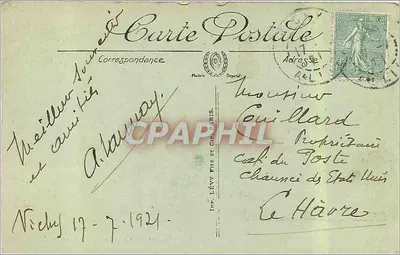 Carte Postale
Correspondance
Adresse
Meilleur souvenir
et amitiés
Vichy 17-7-1921.
Imp. LÉVY FILS ET Cie, PARIS.
CPAPHIL
Monsieur
Couillard
Propriétaire
café du Poste
chaussée des Etats Unis
Le Hâvre